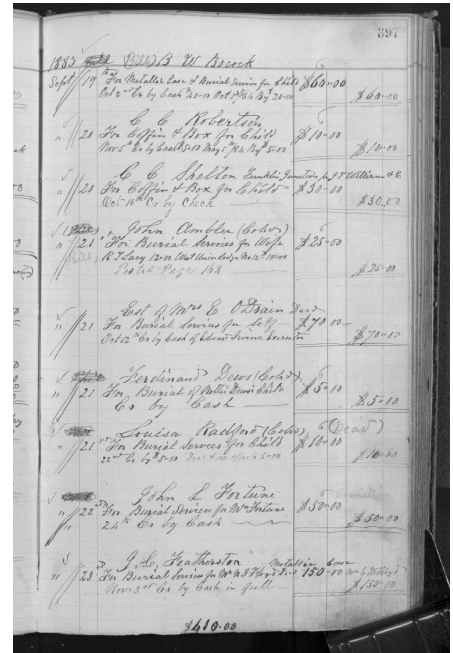 397
1883 Bill B W Bocock
Sept 19th For Metallic Case & Burial Service for Child $60.00
Oct 2nd Cr by Cash 40.00 Oct 20.00 $60.00
" 20 C C Robertson
For Coffin & Box for Child $10.00
Nov 5th Cr by Cash 5.00 May 5th 5.00 $10.00
" 20 C C Shelton Franklin Junction, for J T Williams & C
For Coffin & Box for Child $30.00
Oct 14th Cr by Check $30.00
John Ambler (Cold)
" 21st For Burial Services for Wife $25.00
R J Lacy 12.00 West Union Lodge No 12th 10.00
Page 168 $25.00
Est of Mrs E O'Drain Dead
" 21 For Burial Services for Self $70.00
Oct 12th Cr by Cash of Executor $70.00
Ferdinand Dews (Cold)
" 21 For Burial of Dews Child $5.00
Cr by Cash $5.00
Louisa Radford (Cold) (Dead)
" 21st For Burial Services for Child $10.00
22nd Cr by 5.00 Dead & no effects 5.00 $10.00
John L Fortune
" 22nd For Burial Services for Mrs Fortune $50.00
24th Cr by Cash $50.00
Featherston Metallic Case
" 23d For Burial Service for Floyd 150.00 Floyd
Nov 3rd Cr by Cash in full $150.00
$410.00